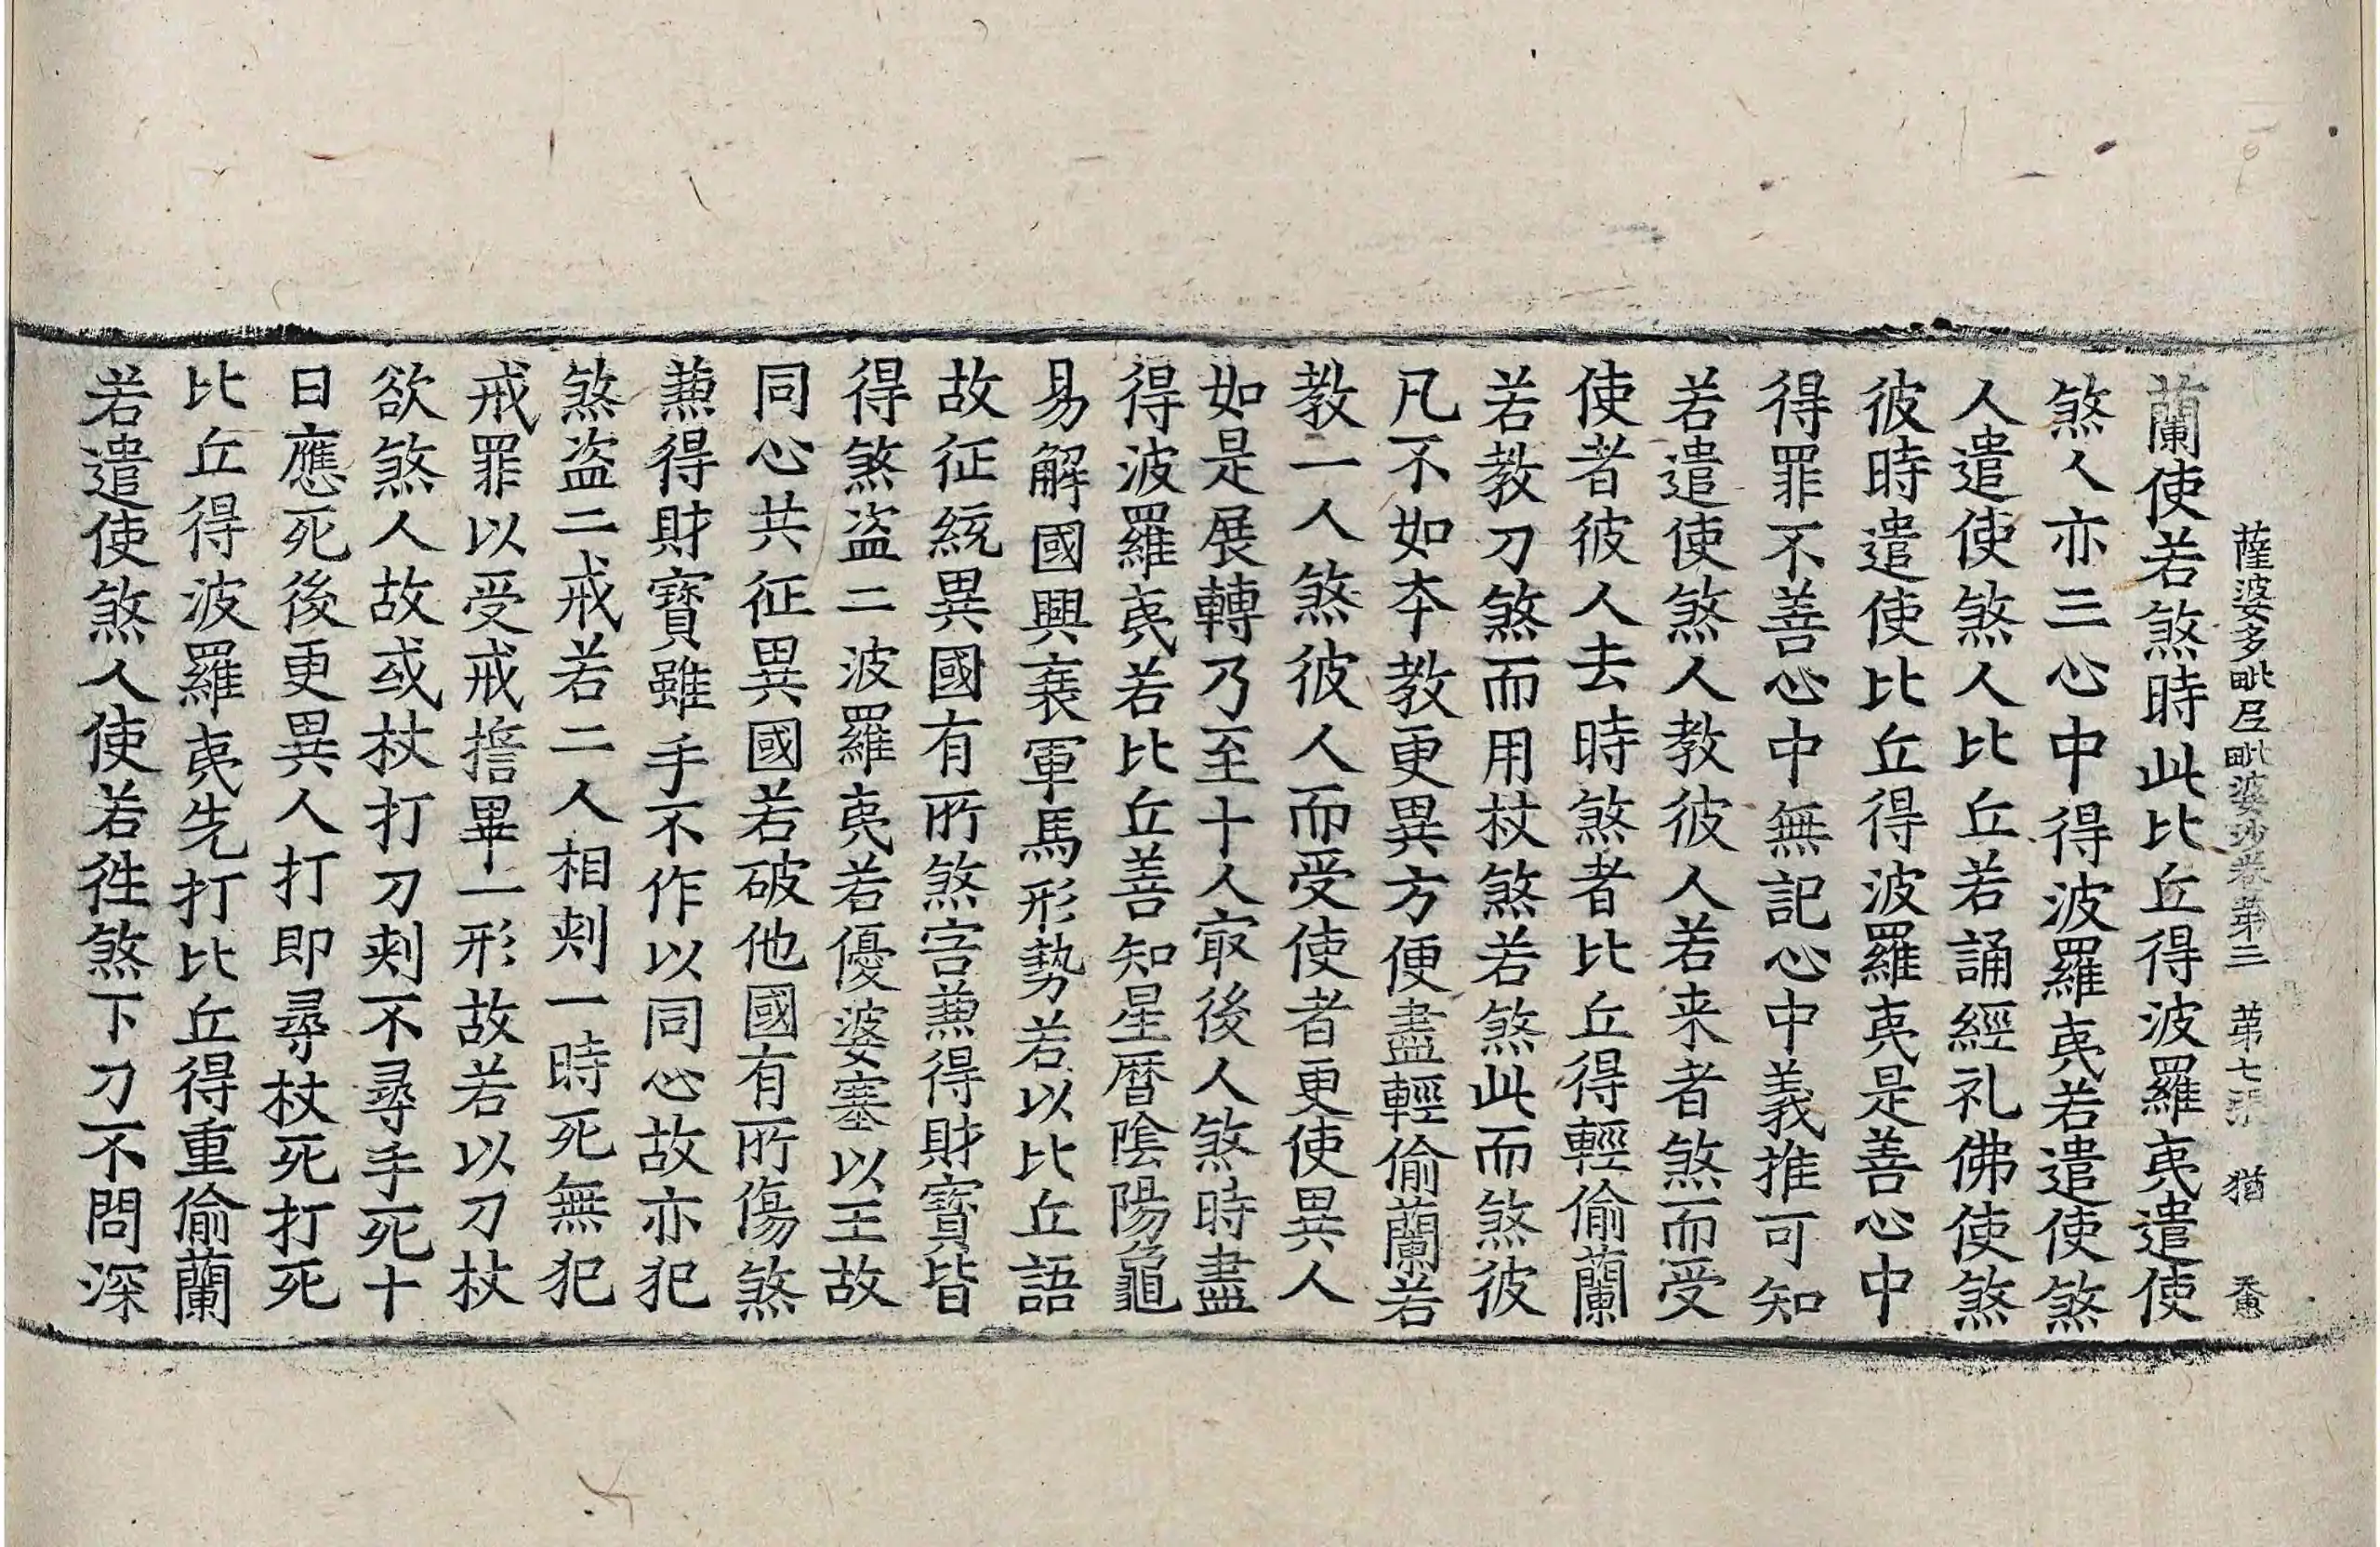 薩婆多毗尼毗婆沙卷第三　第七張　猶　𢙢
蘭使若煞時此比丘得波羅夷遣使
煞人亦三心中得波羅夷若遣使煞
人遣使煞人比丘若誦經礼佛使煞
彼時遣使比丘得波羅夷是善心中
得罪不善心中無記心中義推可知
若遣使煞人教彼人若来者煞而受
使者彼人去時煞者比丘得輕偷蘭
若教刀煞而用杖煞若煞此而煞彼
凡不如夲教更異方便盡輕偷蘭若
教一人煞彼人而受使者更使異人
如是展轉乃至十人㝡後人煞時盡
得波羅夷若比丘善知星曆陰陽龜
易解國興衰軍馬形勢若以比丘語
故征統異國有所煞害𠔥得財寶皆
得煞盗二波羅夷若優婆塞以王故
同心共征異國若破他國有所傷煞
𠔥得財寶雖手不作以同心故亦犯
煞盗二戒若二人相刾一時死無犯
戒罪以受戒擔畢一形故若以刀杖
欲煞人故或杖打刀刾不尋手死十
日應死後更異人打即尋杖死打死
比丘得波羅夷先打比丘得重偷蘭
若遣使煞人使若徃煞下刀不問深